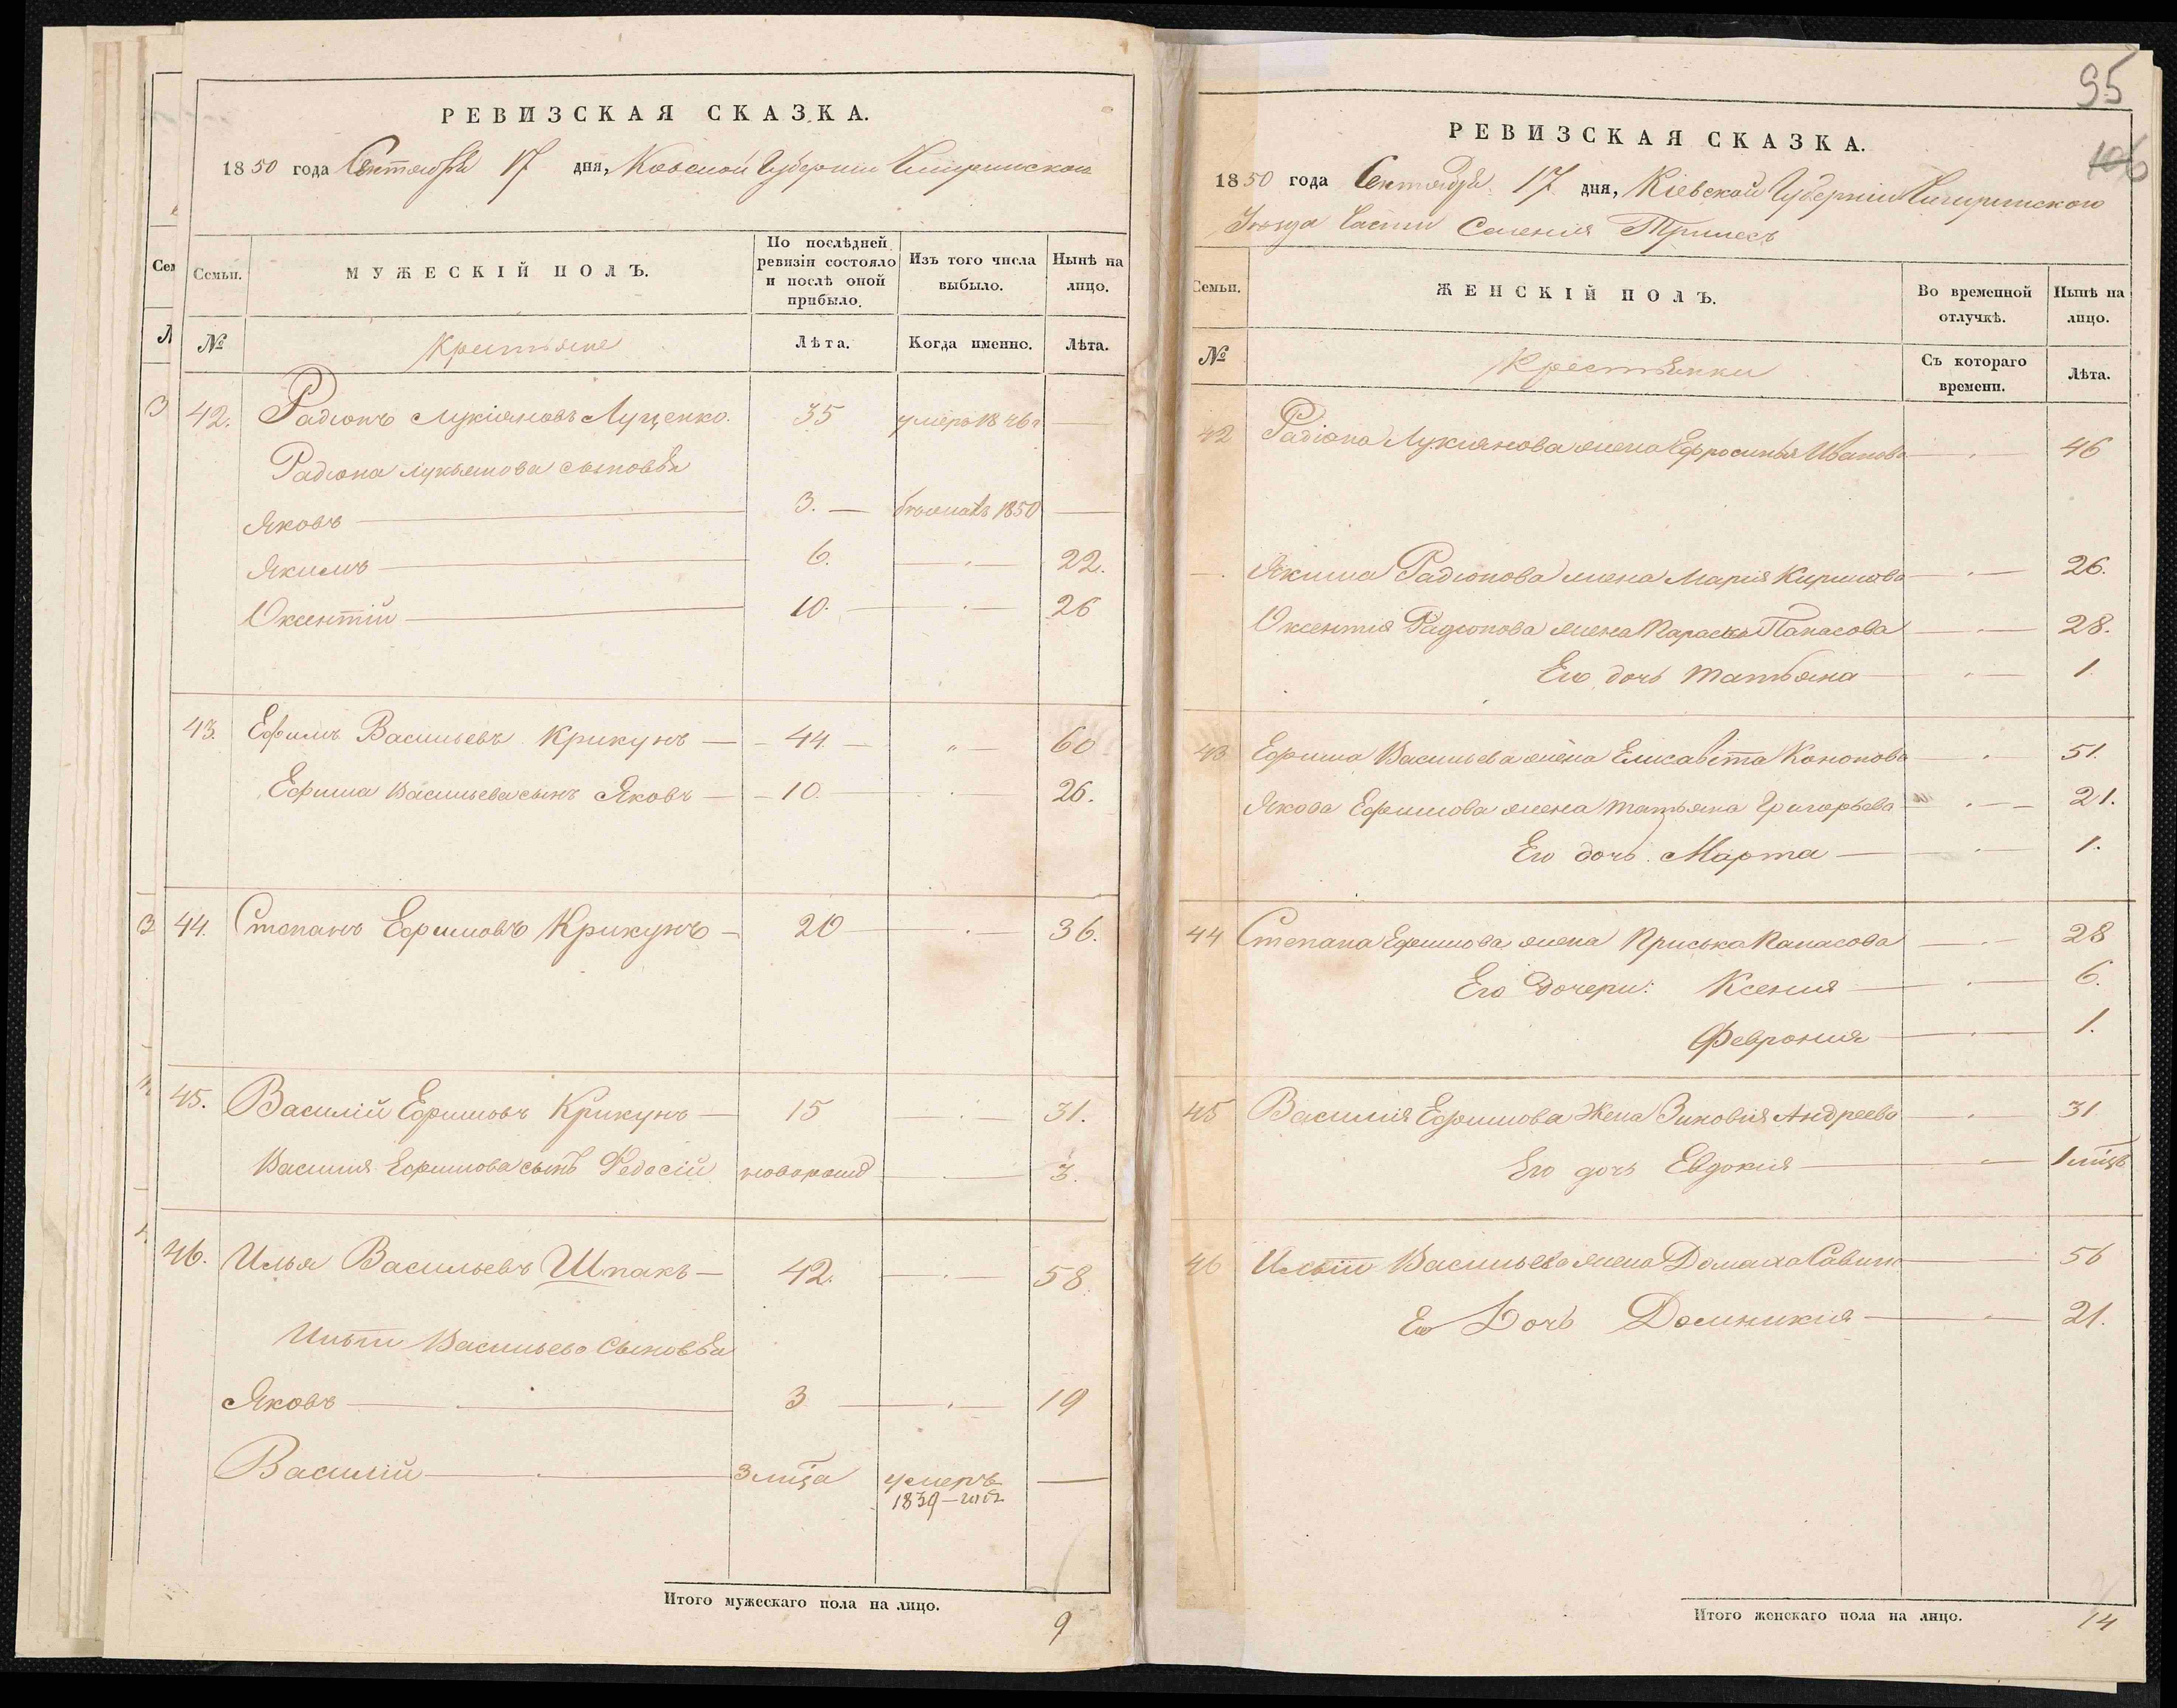 РЕВИЗСКАЯ СКАЗКА.
1850 года Сентября 17 дня, Киевской Губернии Чигиринскаго
Семьи.
МУЖЕСКІЙ ПОЛЪ.
По послѣдней ревизіи состояло и послѣ оной прибыло.
Изъ того числа выбыло.
Нынѣ на лицо.
№
Крестьяне
Лѣта.
Когда именно.
Лѣта.
42. Радіонъ Лукіяновъ Луценко. 35 умеръ 1846 г —
Радіона Лукьянова сыновья
Яковъ — 3. — бѣжалъ 1850 —
Якимъ — 6. — 22.
Оксентій — 10. — 26
43. Ефимъ Васильевъ Крикунъ — 44. — „ — 60
Ефима Васильева сынъ Яковъ — 10. — 26.
44. Степанъ Ефимовъ Крикунъ — 20 — 36.
45. Василій Ефимовъ Крикунъ — 15 — 31.
Василия Ефимова сынъ Федосій новорожд — 3.
46. Илья Васильевъ Шпакъ — 42. — 58.
Ильи Васильева Сыновья
Яковъ — 3 — 19
Василій — 3 мца умеръ 1839 — года —
Итого мужескаго пола на лицо.
9
95
106
РЕВИЗСКАЯ СКАЗКА.
1850 года Сентября 17 дня, Кіевской Губерніи Чигиринскаго
Уѣзда Части Селения Трилесъ
Семьи.
ЖЕНСКІЙ ПОЛЪ.
Во временной отлучкѣ.
Нынѣ на лицо.
№
Крестьянки
Съ котораго времени.
Лѣта.
42 Радіона Лукиянова жена Ефросинья Иванова — 46
Якима Радіонова жена Марія Кирилова — 26.
Оксентія Радіонова жена Параска Панасова — 28.
Его дочь Татьяна — 1.
43 Ефима Васильева жена Елисавета Кононова — 51.
Якова Ефимова жена Татьяна Григорьева — 21.
Его дочь Марта — 1.
44 Степана Ефимова жена Приська Панасова — 28
Его Дочери: Ксения — 6.
Феврония — 1.
45 Василія Ефимова Жена Зиновія Андреева — 31
Его дочь Евдокія — 1 мцъ
46 Ильи Васильева жена Домаха Савина — 56
Ео Дочь Домникия — 21.
Итого женскаго пола на лицо.
14